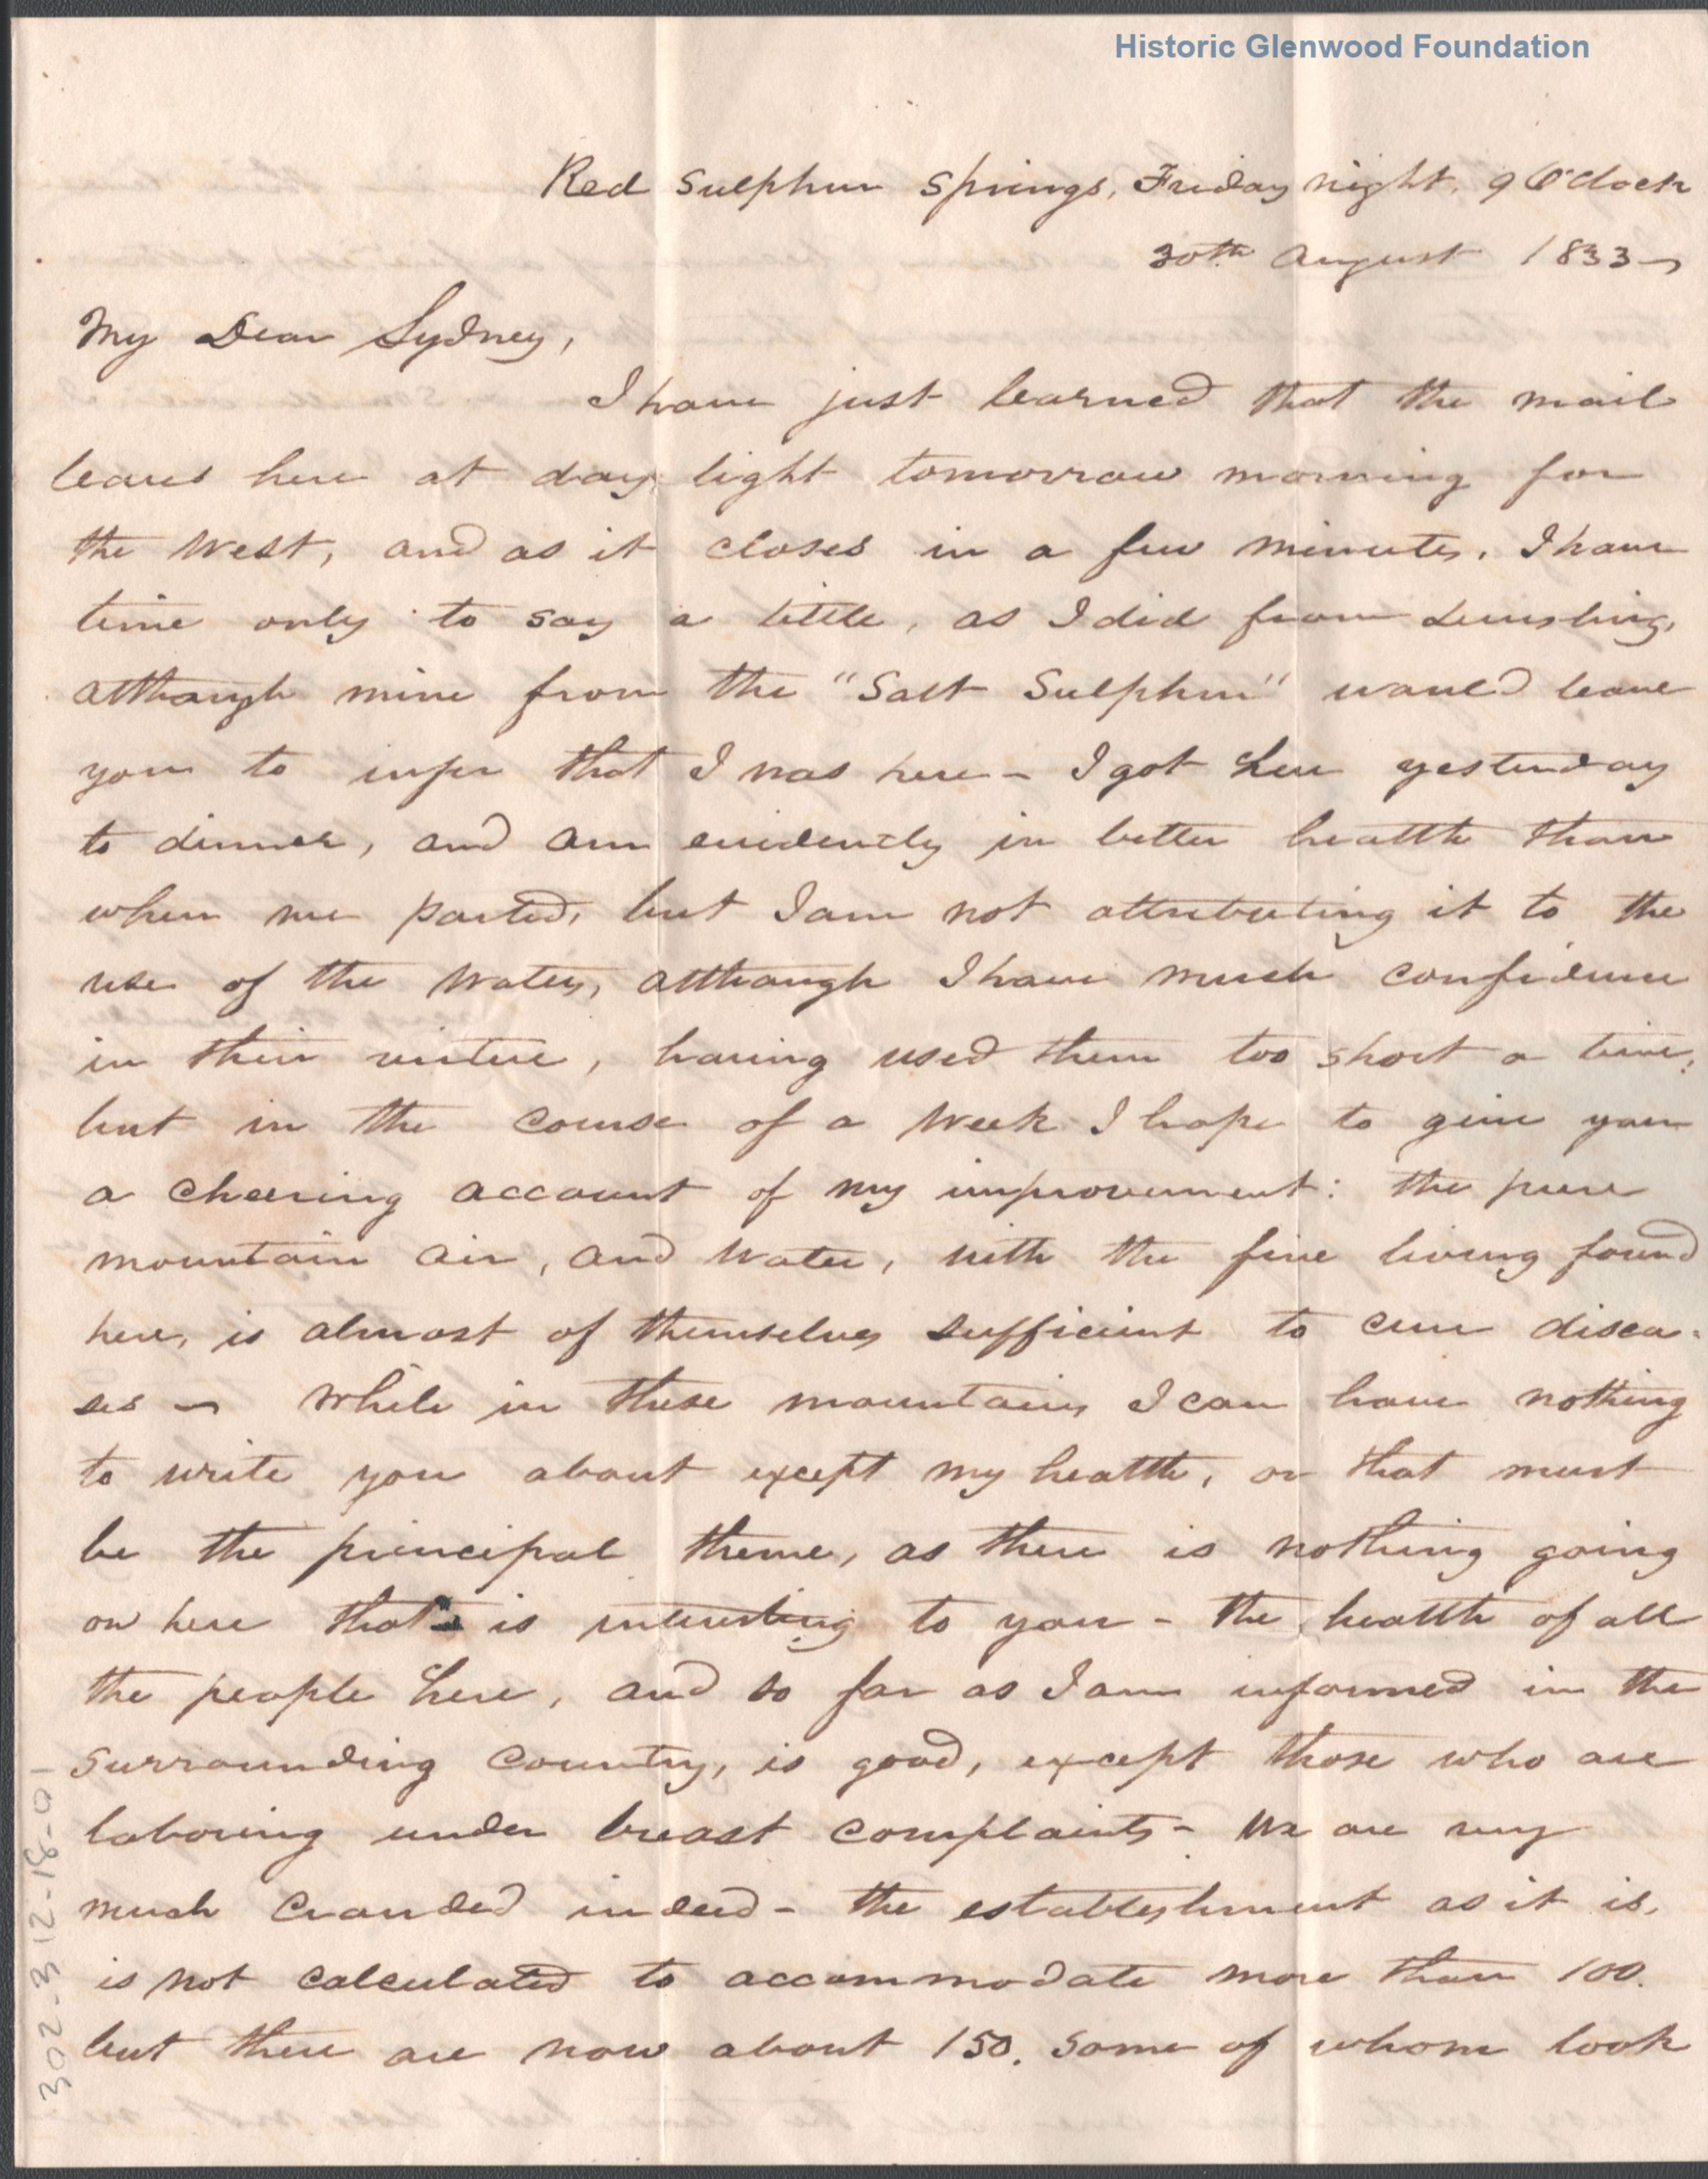 Historic Glenwood Foundation
Red Sulphur Springs, Friday night, 9 O'Clock
30th August 1833
My Dear Sydney,
I have just learned that the mail
leaves here at day light tomorrow morning for
the West, and as it closes in a few minutes, I have
time only to say a little, as I did from
although mine from the "Salt Sulphur" would leave
you to infer that I was here - I got here yesterday
to dinner, and am evidently in better health than
when we parted, but I am not attributing it to the
use of the Waters, although I have much confidence
in their virtue, having used them too short a time,
but in the course of a Week I hope to give you
a cheering account of my improvement: the pure
mountain air, and Water, with the fine living found
here, is almost of themselves sufficient to cure disea-
ses - While in these mountains I can have nothing
to write you about except my health, or that must
be the principal theme, as there is nothing going
on here that is interesting to you - the health of all
the people here, and so far as I am informed in the
surrounding Country, is good, except those who are
laboring under breast complaints - We are very
much Crouded indeed - the establishment as it is,
is not calculated to accommodate more than 100.
but there are now about 150. some of whom look
302-312-18-01